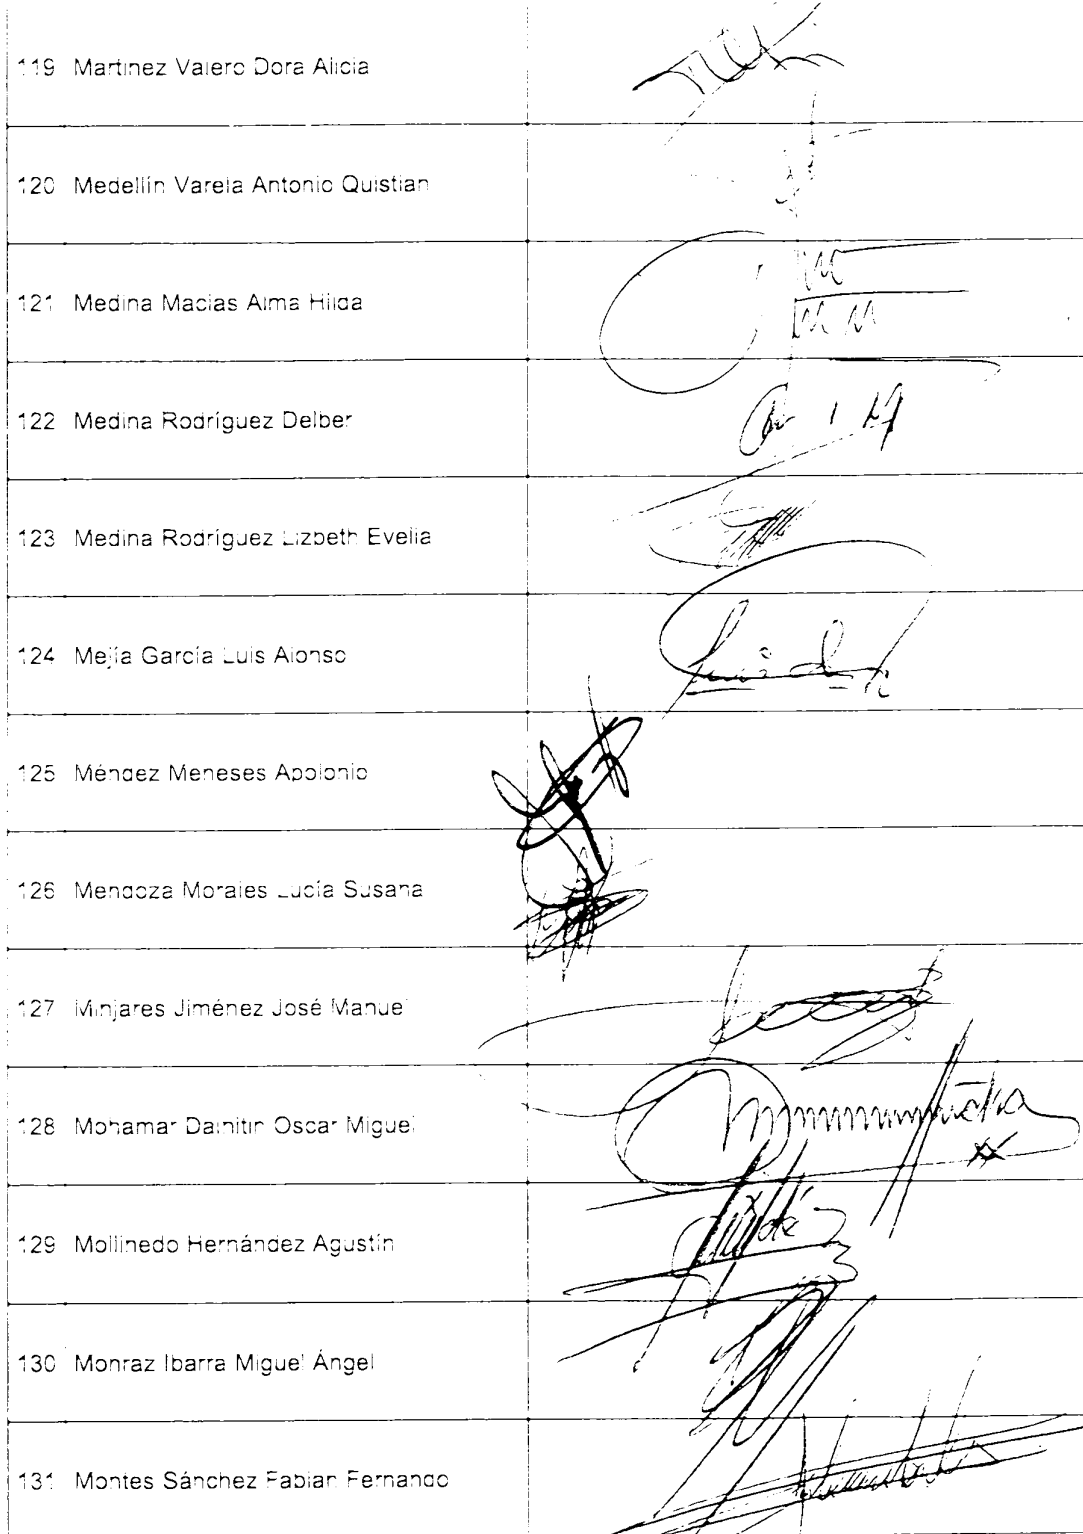 119 Martínez Valero Dora Alicia
120 Medellín Varela Antonio Quistian
121 Medina Macias Alma Hilda
122 Medina Rodríguez Delber
123 Medina Rodríguez Lizbeth Evelia
124 Mejía García Luis Alonso
125 Méndez Meneses Apolonio
126 Mendoza Morales Lucía Susana
127 Minjares Jiménez José Manuel
128 Mohamar Dainitin Oscar Miguel
129 Mollinedo Hernández Agustín
130 Monraz Ibarra Miguel Ángel
131 Montes Sánchez Fabian Fernando